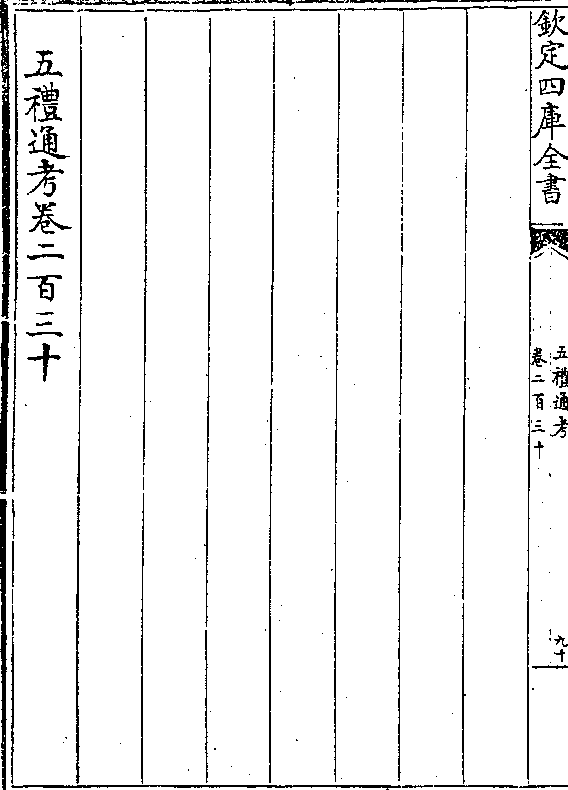 欽定四庫全書
五禮通考
卷二百三十
九十
五禮通考卷二百三十